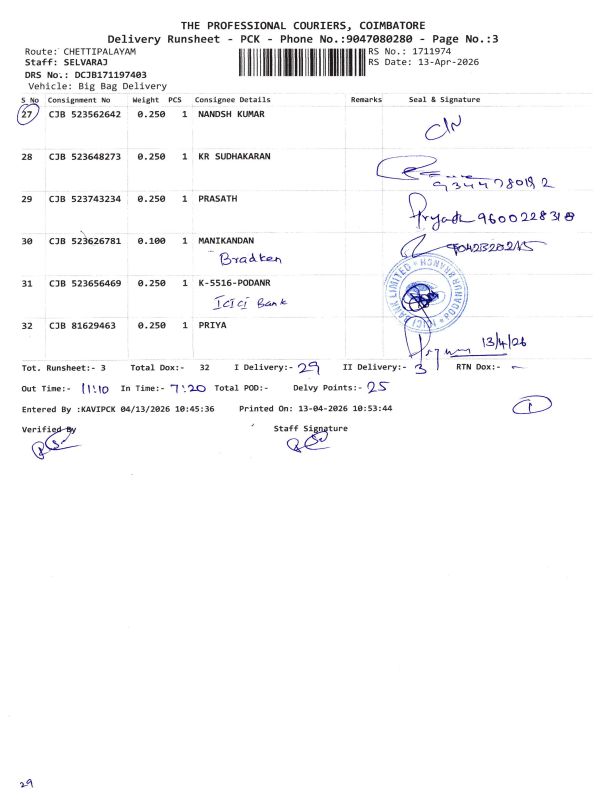 THE PROFESSIONAL COURIERS, COIMBATORE
Delivery Runsheet - PCK - Phone No.:9047080280 - Page No.:3
Route: CHETTIPALAYAM RS No.: 1711974
Staff: SELVARAJ RS Date: 13-Apr-2026
DRS No.: DCJB171197403
Vehicle: Big Bag Delivery
S No Consignment No Weight PCS Consignee Details Remarks Seal & Signature
27 CJB 523562642 0.250 1 NANDSH KUMAR
C/N
28 CJB 523648273 0.250 1 KR SUDHAKARAN
9344780192
29 CJB 523743234 0.250 1 PRASATH
9600228318
30 CJB 523626781 0.100 1 MANIKANDAN
Bradken
31 CJB 523656469 0.250 1 K-5516-PODANR
ICICI Bank
ICICI BANK LIMITED * PODANUR BRANCH *
32 CJB 81629463 0.250 1 PRIYA
13/4/26
Tot. Runsheet:- 3 Total Dox:- 32 I Delivery:- 29 II Delivery:- 3 RTN Dox:- -
Out Time:- 11:10 In Time:- 7:20 Total POD:- Delvy Points:- 25
Entered By :KAVIPCK 04/13/2026 10:45:36 Printed On: 13-04-2026 10:53:44
1
Verified By Staff Signature
29